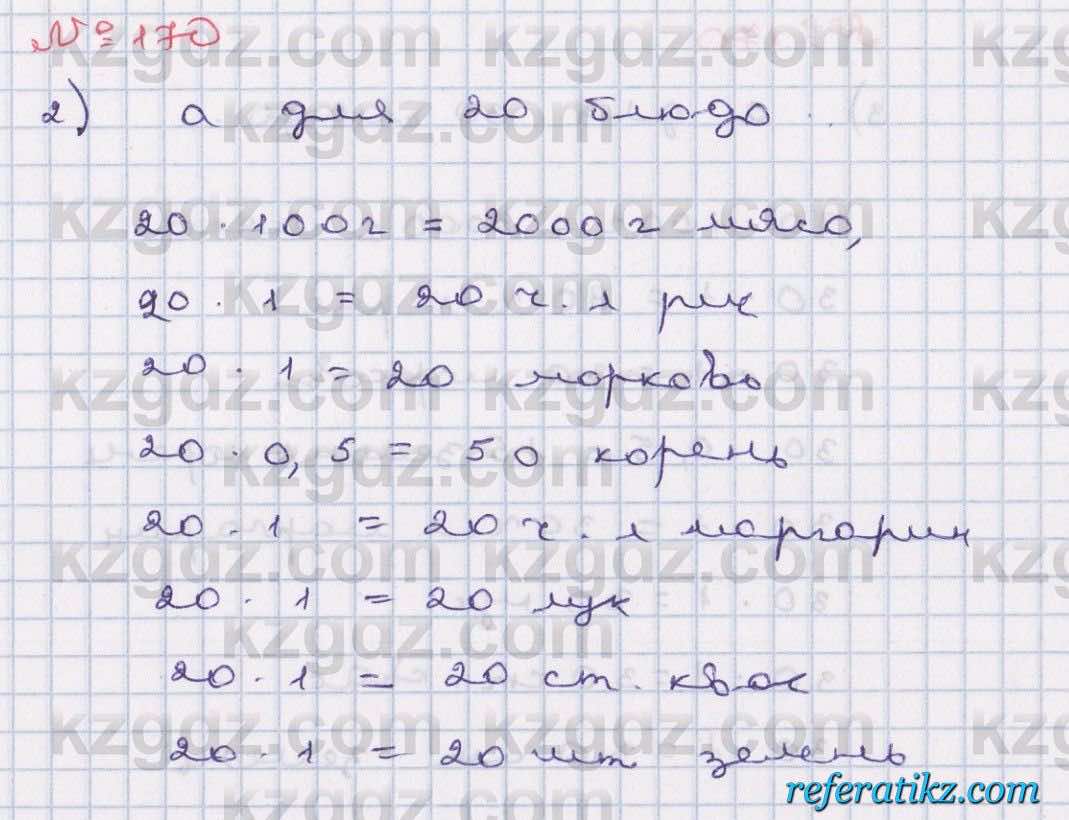 № 170
2) а для 20 блюдо
20 · 100г = 2000 г мясо,
20 · 1 = 20 ч. л рис
20 · 1 = 20 морковь
20 · 0,5 = 50 корень
20 · 1 = 20 ч. л маргарин
20 · 1 = 20 лук
20 · 1 = 20 ст. квас
20 · 1 = 20 шт. зелень
kzgdz.com
referatikz.com